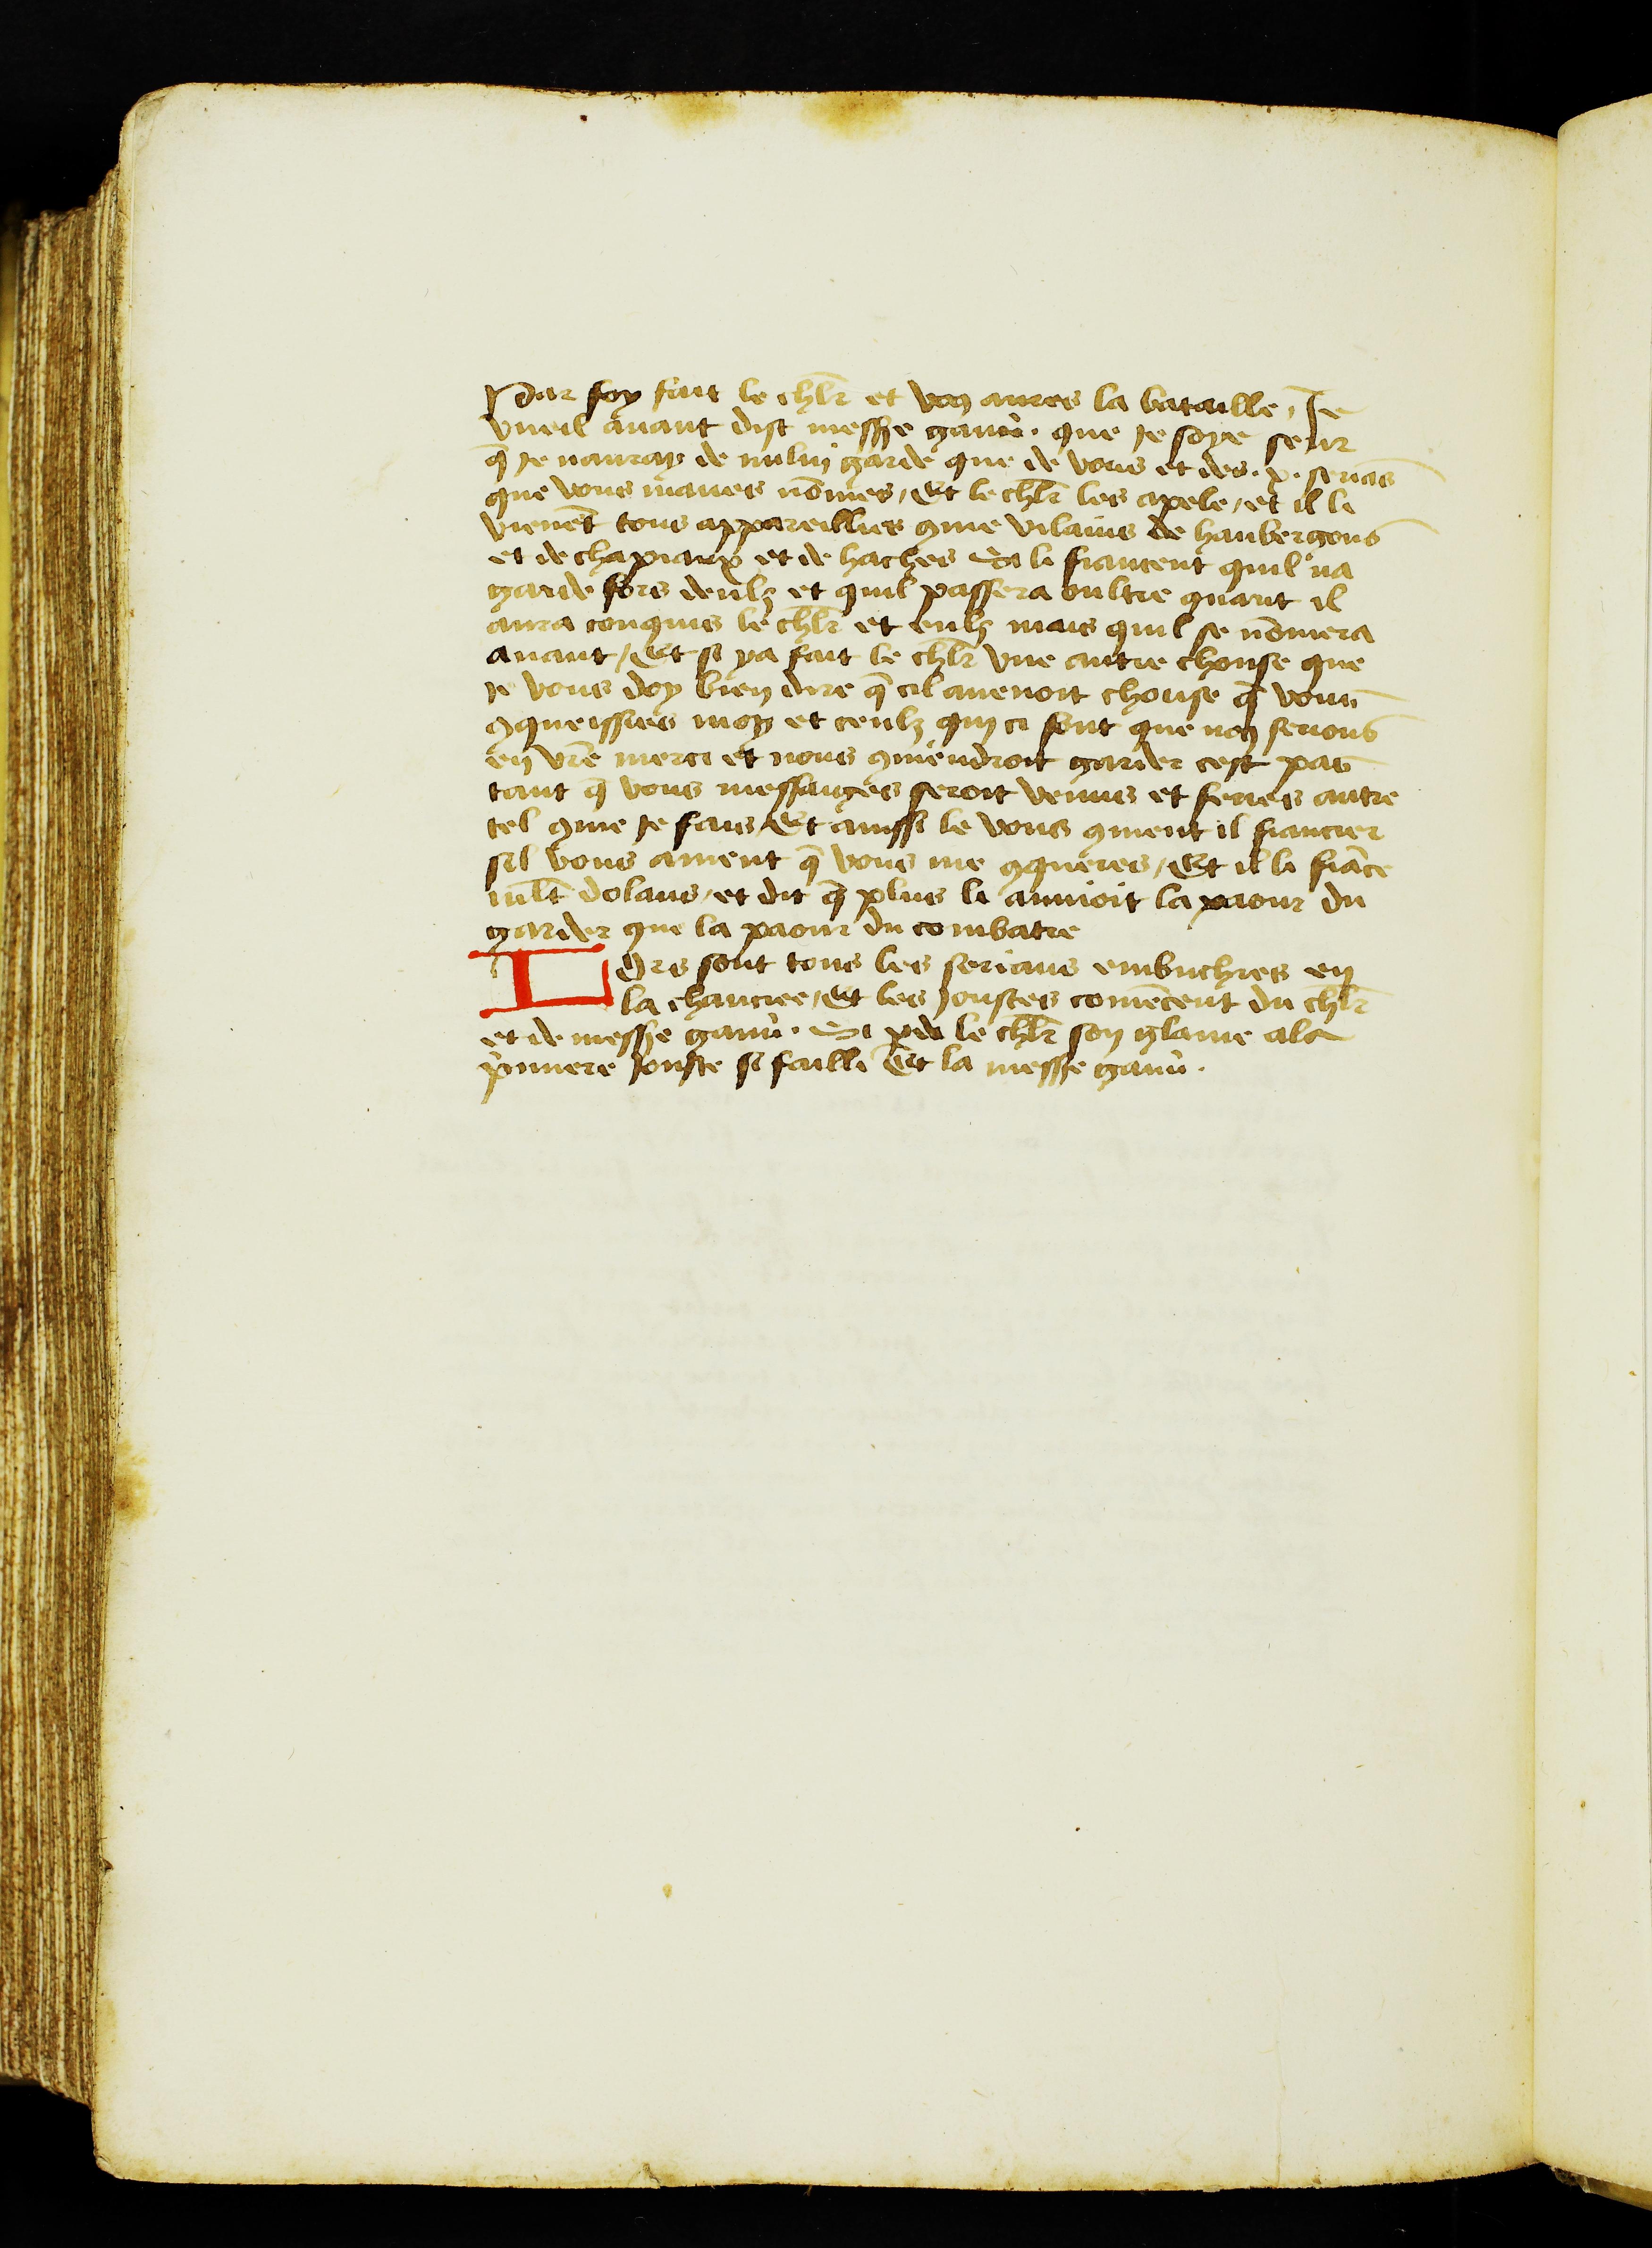 Par foy fait le chl̅r et voꝯ aures la bataille / Je
vueil auant dist messe gauu̕ . que je soye seur
q̄ je nauray de nuluj garde que de vous et des . x . seriās
que vous mauez nōmes / Et le chl̅r les apele / et il li
vienēt tous appareillies ꝯme vilains de haubergons
et de chapiaux et de haches Si li fiancent quil na
garde fors deulz et quil passera oultre quant il
aura conquis le chl̅r et eulz mais quil se nōmera
auant / Et si ya fait le chl̅r vne autre chouse que
je vous doy bien dire q̄ cil auenoit chouse q̄ vous
ꝯqueissies moy et ceulz qui ci sont que noꝯ serions
en vr̄e merci et nous ꝯuiendroit garder cest pas
tant q̄ vous messaiges seroit venus et feries autre
tel ꝯme je fais / Et aussi le vous ꝯuient il fiancier
sil vous auient q̄ vous me ꝯqueres / Et il li fiāce
ml̅t dolans / et dit q̄ plus li annuoit la paour du
garder que la paour du combatre
Lors sont tous les serians embuchies en
la chaucee / Et les joustes comēcent du chl̅r
et de messe gauu̕ . Si pert le chl̅r son glaiue ala
p̕miere jouste si failli Et la messe gauu̕ .